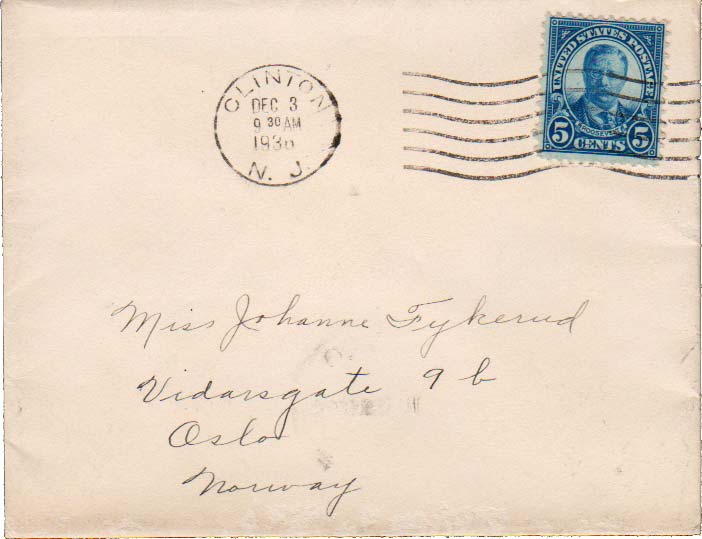 CLINTON
DEC 3
9 30 AM
1936
N. J.
UNITED STATES POSTAGE
ROOSEVELT
5 CENTS 5
Miss Johanne Fykerud
Vidarsgate 9 b
Oslo
Norway